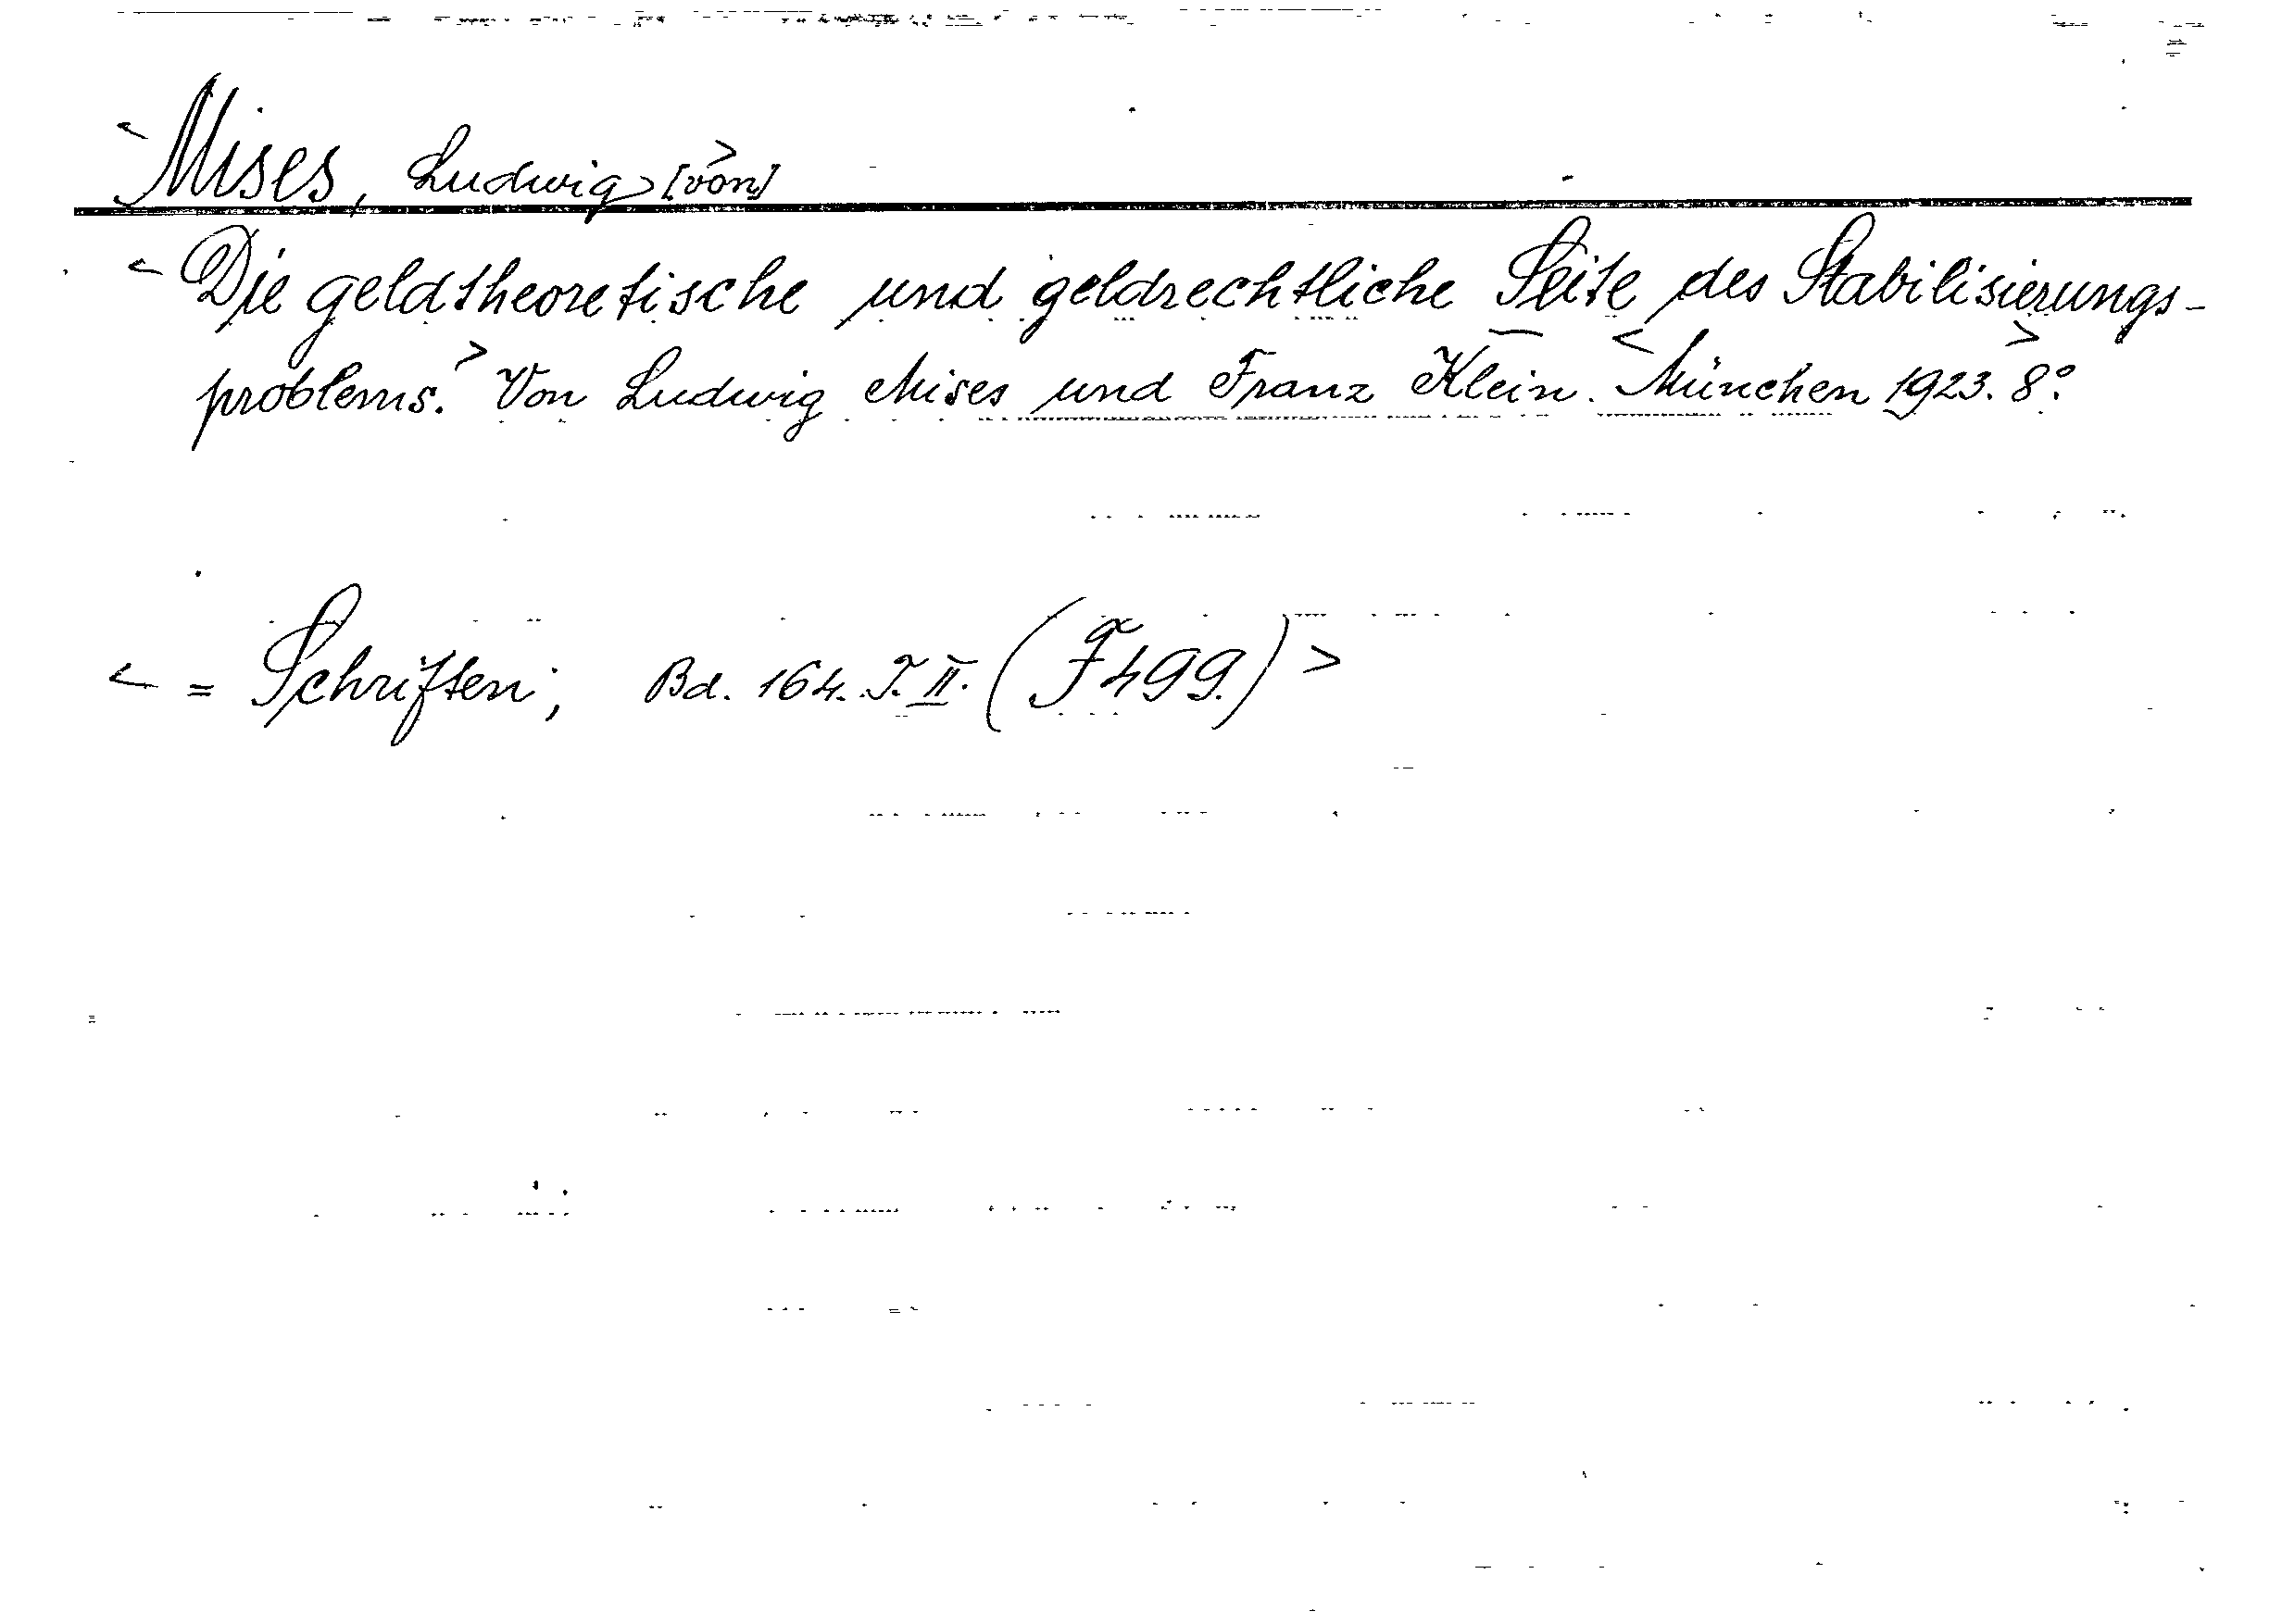 <Mises, Ludwig [von]>
<Die geldtheoretische und geldrechtliche Seite des Stabilisierungs-
problems.> Von Ludwig Mises und Franz Klein. <München 1923.> 8°.
<= Schriften; Bd. 164. T. II. (F499.)>